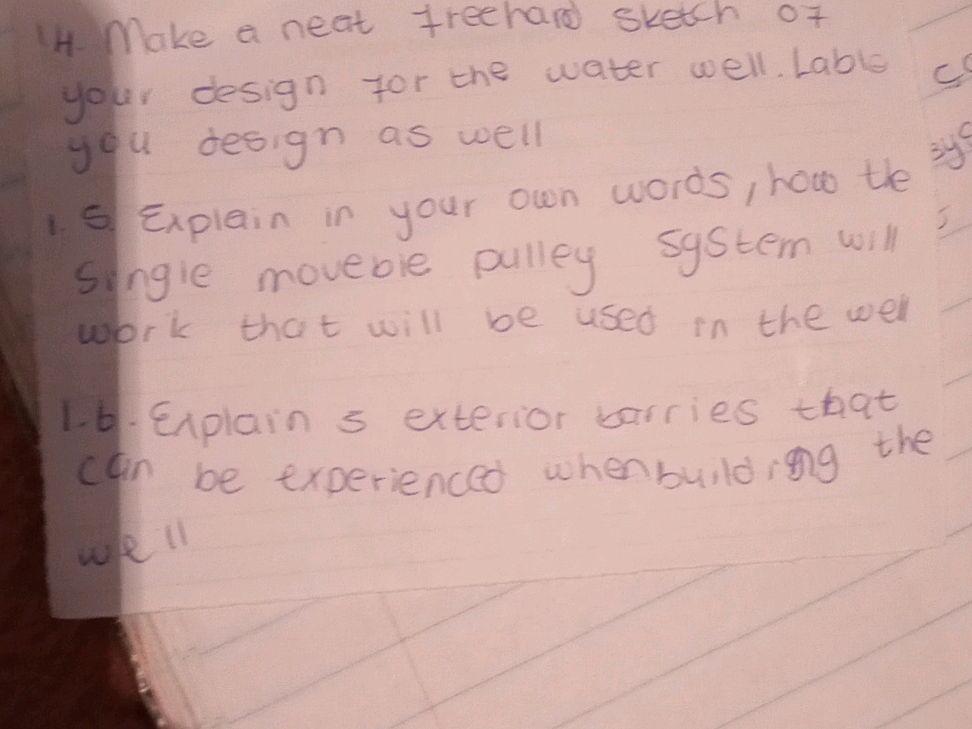 1.4. Make a neat freehand sketch of
your design for the water well. Lable
you design as well
1.5. Explain in your own words, how the
single moveble pulley system will
work that will be used in the well
1.6. Explain 5 exterior barries that
can be experienced when building the
well